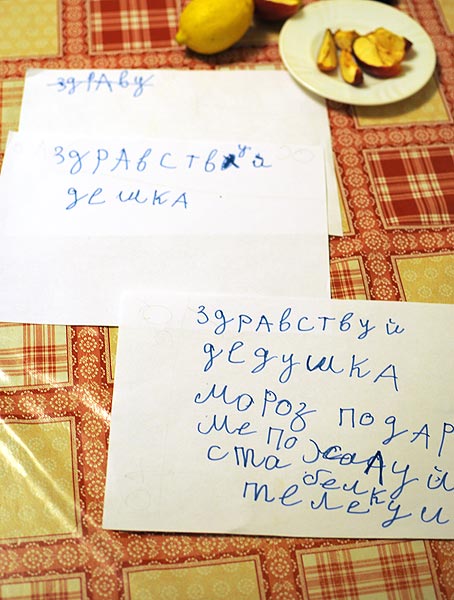 здраву
здравствуй
дешка
здравствуй
дедушка
мороз подар
ме по жалуй
ста белку
телеки